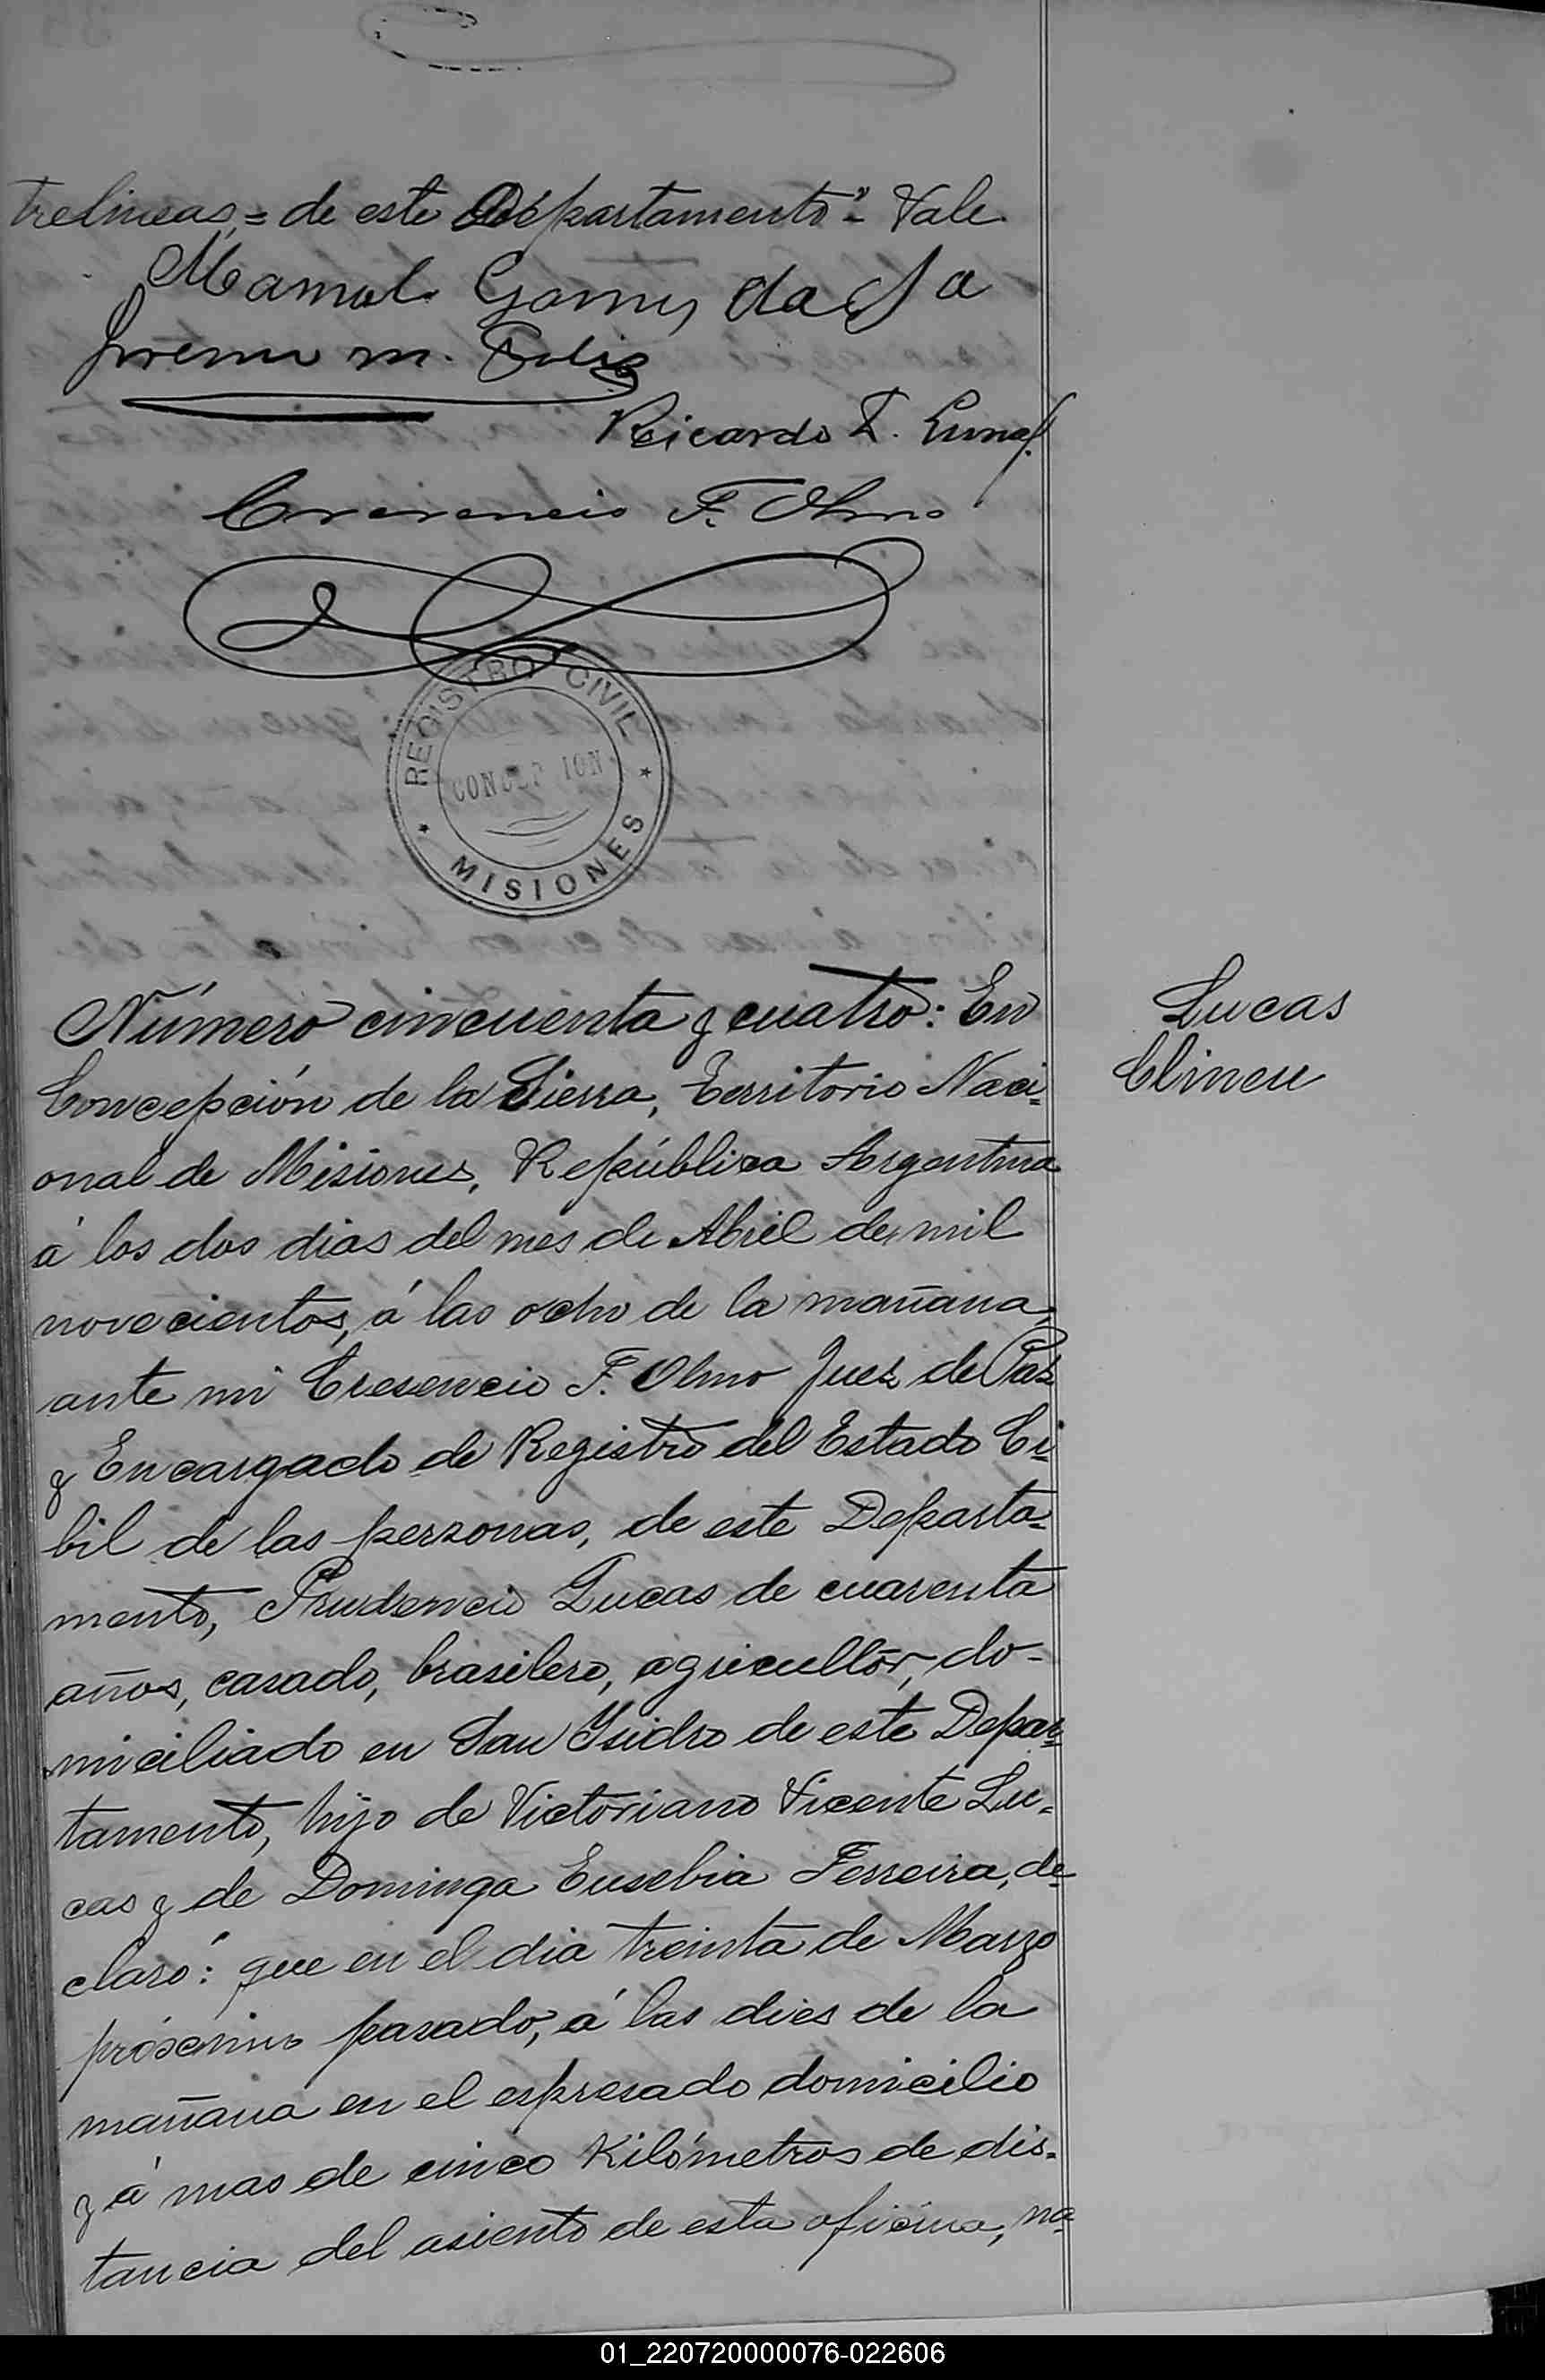 trelineas,, = de este Departamento" - Vale
Manoel Gomes da
m.
Ricardo F. Luna
Crecencio F. Olmo
REGISTRO CIVIL
CONCEPCION
MISIONES
Número cincuenta y cuatro: En
Concepción de la Sierra, Territorio Naci=
onal de Misiones, República Argentina
á los dos dias del mes de Abril de mil
novecientos, á las ocho de la mañana,
ante mi Cresencio F. Olmo Juez de Paz
y Encargado de Registro del Estado Ci=
bil de las perzonas, de este Departa=
mento, Prudencio Lucas de cuarenta
años, casado, brasilero, agricultor, do-
miciliado en San Ysidro de este Depar=
tamento, hijo de Victoriano Vicente Lu=
cas y de Dominga Eusebia Ferreira, de=
claró: que en el dia treinta de Marzo
prócsimo pasado, á las dies de la
mañana en el espresado domicilio
y á mas de cinco Kilómetros de dis=
tancia del asiento de esta oficina, na=
Lucas
Clineu
01_220720000076-022606